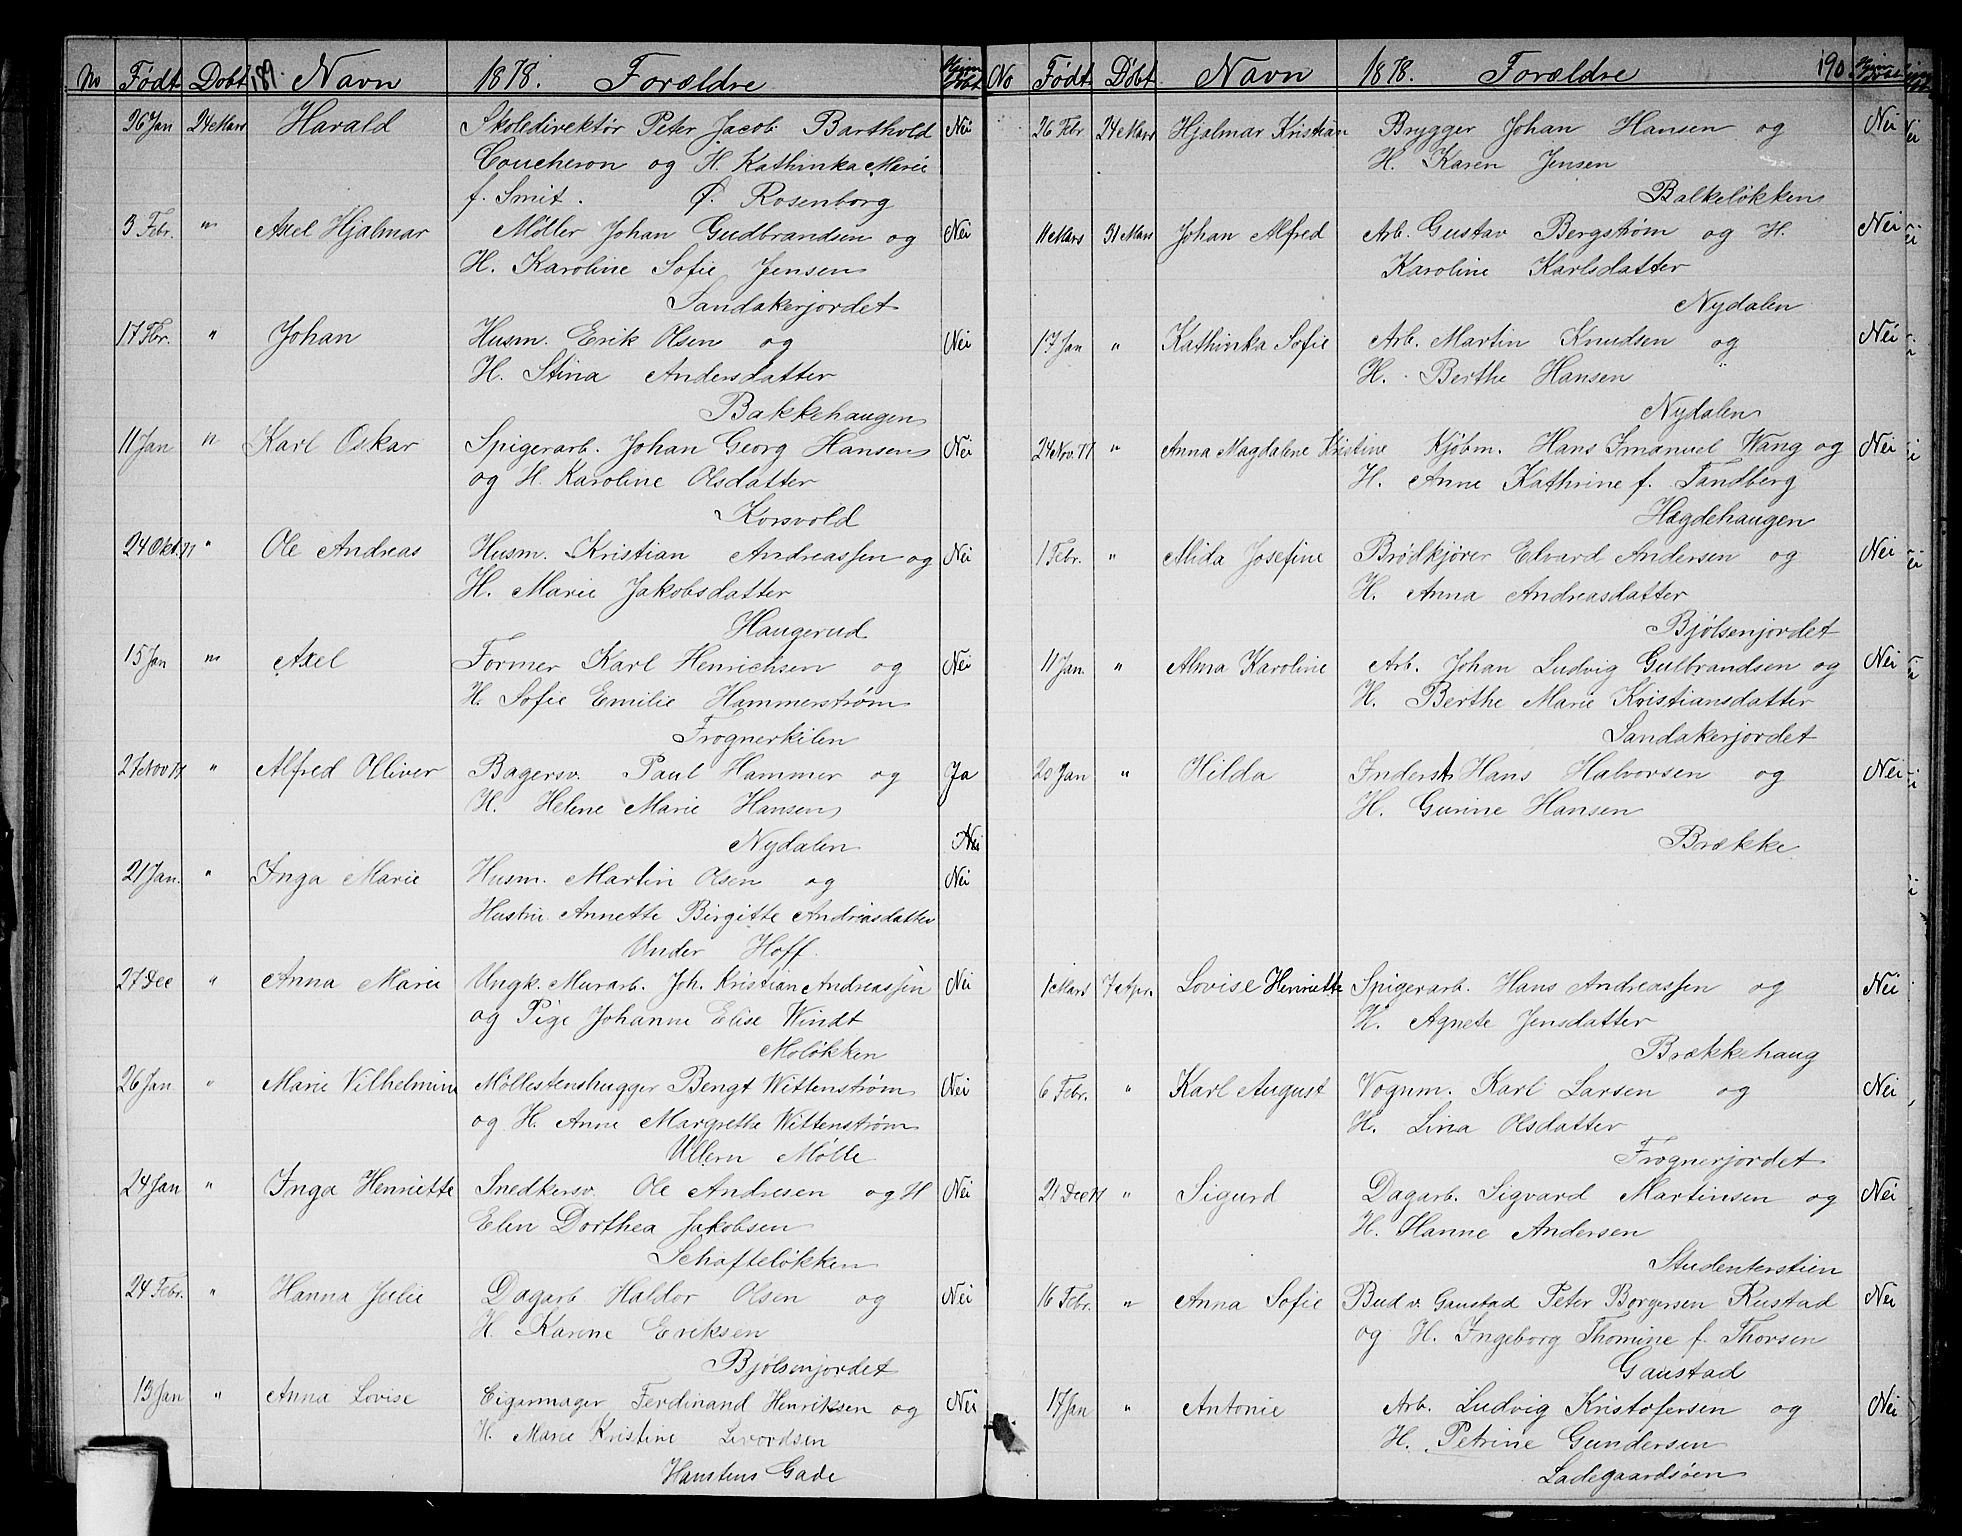 No Født Døbt 189. Navn 1878. Forældre Hjem Døbt
26 Jan 24 Mars Harald Skoledirektør Peter Jacob Barthold Nei
Coucheron og H. Kathinka Marie
f. Smit. Ø. Rosenborg
3 Febr. " Axel Hjalmar Møller Johan Gudbrandsen og Nei
H. Karoline Sofie Jensen
Sandakerjordet
17 Fbr. " Johan Husm. Erik Olsen og Nei
H. Stina Andersdatter
Bakkehaugen
11 Jan " Karl Oskar Spigerarb. Johan Georg Hansen Nei
og H. Karoline Olsdatter
Korsvold
24 Okt. 77 " Ole Andreas Husm. Kristian Andreassen og Nei
H. Marie Jakobsdatter
Haugerud
15 Jan " Axel Former Karl Henrichsen og Nei
H. Sofie Emilie Hammerstrøm
Frognerkilen
27 Nov 77 " Alfred Olliver Bagersv. Paul Hammer og Ja
H. Helene Marie Hansen
Nydalen Nei
21 Jan. " Inga Marie Husm. Martin Olsen og Nei
Hustru Annette Birgitte Andriasdatter
Under Hoff.
27 Dec " Anna Marie Ungk. Murarb. Joh. Kristian Andreassen Nei
og Pige Johanne Elise Windt
Moløkken
26 Jan " Marie Vilhelmine Møllestenshugger Bengt Wittenstrøm Nei
og H. Anne Margrethe Wittenstrøm
Ullern Mølle
24 Jan " Inga Henriette Snedkersv. Ole Andresen og H Nei
Elen Dorthea Jakobsen
Schafteløkken
24 Febr. " Hanna Julie Dagarb. Haldor Olsen og Nei
H. Karine Eriksen
Bjølsenjordet
13 Jan " Anna Lovise Cigarmager Ferdinand Henriksen og Nei
H. Marie Kristine Sivordsen
Hanstens Gade
No Født Døbt Navn 1878. Forældre 190 Hjem Døbt
26 Febr 24 Mars Hjalmar Kristian Brygger Johan Hansen og Nei
H. Karen Jensen
Balkeløkken
11 Mars 31 Mars Johan Alfred Arb. Gustav Bergstrøm og H. Nei
Karoline Karlsdatter
Nydalen
17 Jan " Kathinka Sofie Arb. Martin Knudsen og Nei
H. Berthe Hansen
Nydalen
24 Nov. 77 " Anna Magdalene Kristine Kjøbm. Hans Imanuel Wang og Nei
H. Anne Kathrine f. Tandberg
Hægdehaugen
1 Febr. " Alida Josefine Brødkjører Edvard Andersen og Nei
H. Anna Andreasdatter
Bjølsenjordet
11 Jan. " Alma Karoline Arb. Johan Ludvig Gulbrandsen og Nei
H. Berthe Marie Kristiansdatter
Sandakerjordet
20 Jan " Hilda Inderst Hans Halvorsen og Nei
H. Gurine Hansen
Brække
1 Mars 7 Apr. Lovise Henriette Spigerarb. Hans Andreassen og Nei
H. Agnete Jensdatter
Brækkehaug
6 Febr. " Karl August Vognm. Karl Larsen og Nei
H. Lina Olsdatter
Frognerjordet
21 Dec 77 " Sigurd Dagarb. Sigvard Martinsen og Nei
H. Hanne Andersen
Studenterstien
16 Febr. " Anna Sofie Bud v. Gaustad Peter Borgersen Rustad Nei
og H. Ingeborg Thomine f. Thorsen
Gaustad
17 Jan " Antonie Arb. Ludvig Kristofersen og Nei
H. Petrine Gundersen
Ladegaardsøen